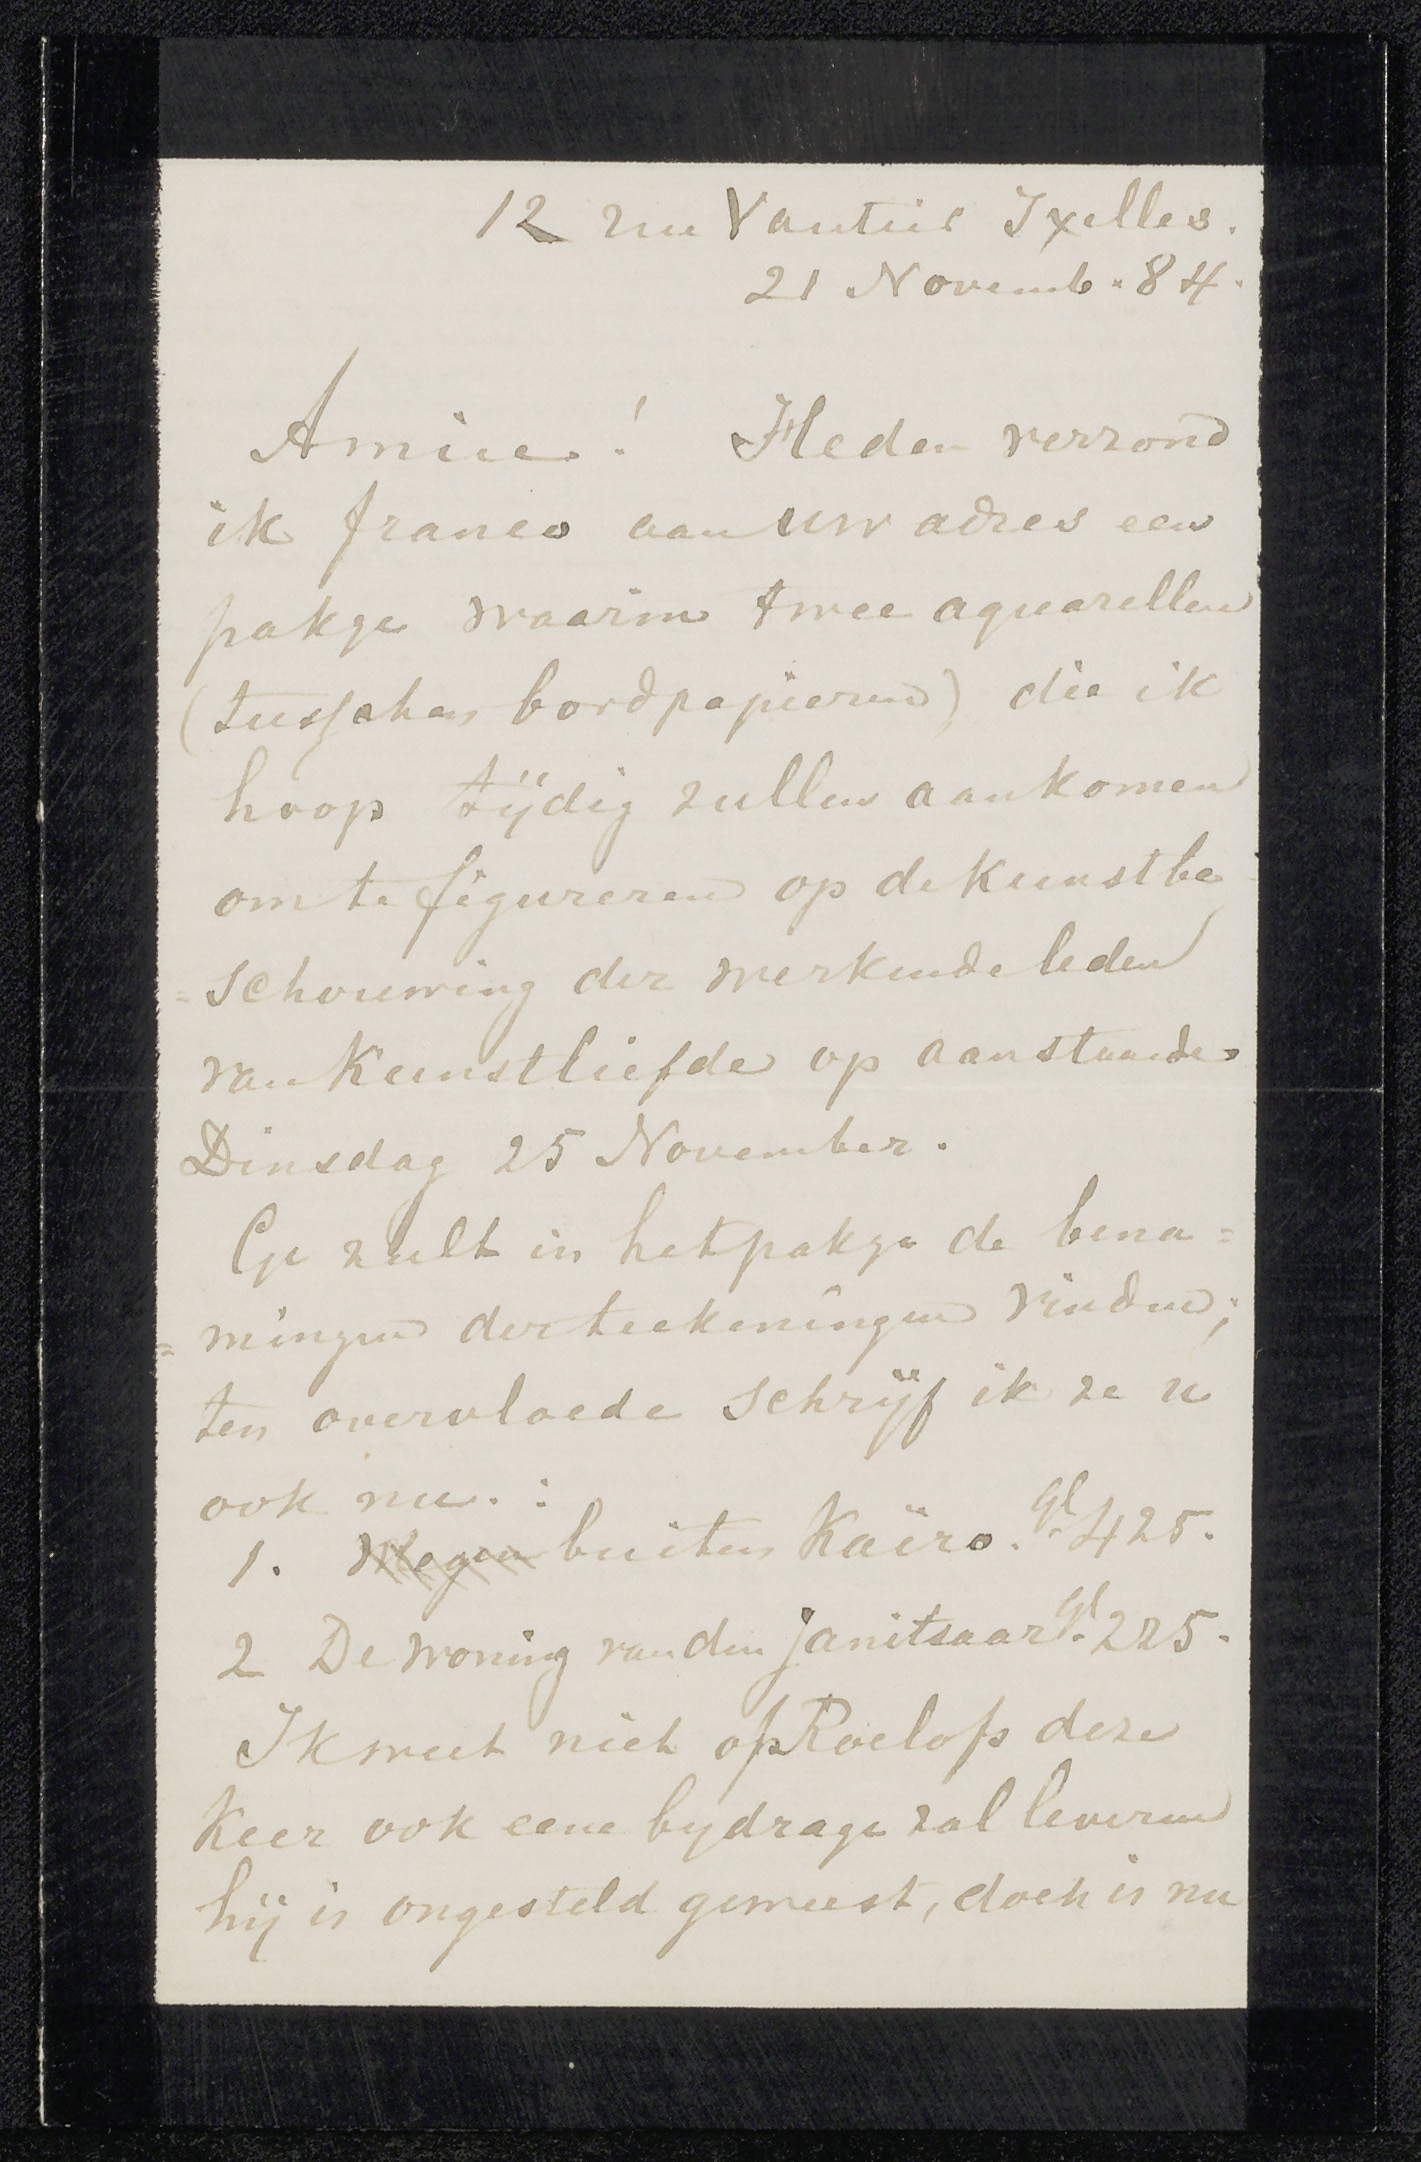 12 rue Vautier Ixelles.
21 Novemb. 84.
Amice! Heden verzond
ik franco aan uw adres een
pakje waarin twee aquarellen
(tusschen bordpapieren) die ik
hoop tijdig zullen aankomen
om te figureren op de kunstbe
=schouwing der werkende leden
van Kunstliefde op aanstaande
Dinsdag 25 November.
Ge zult in het pakje de bena=
=mingen der teekeningen vinden;
ten overvloede schrijf ik ze u
ook nu. :
1. buiten Kaïro. Gl. 425.
2 De woning van den janitsaar Gl. 225.
Ik weet niet of Roelofs deze
keer ook eene bydrage zal leveren
hij is ongesteld geweest, doch is nu